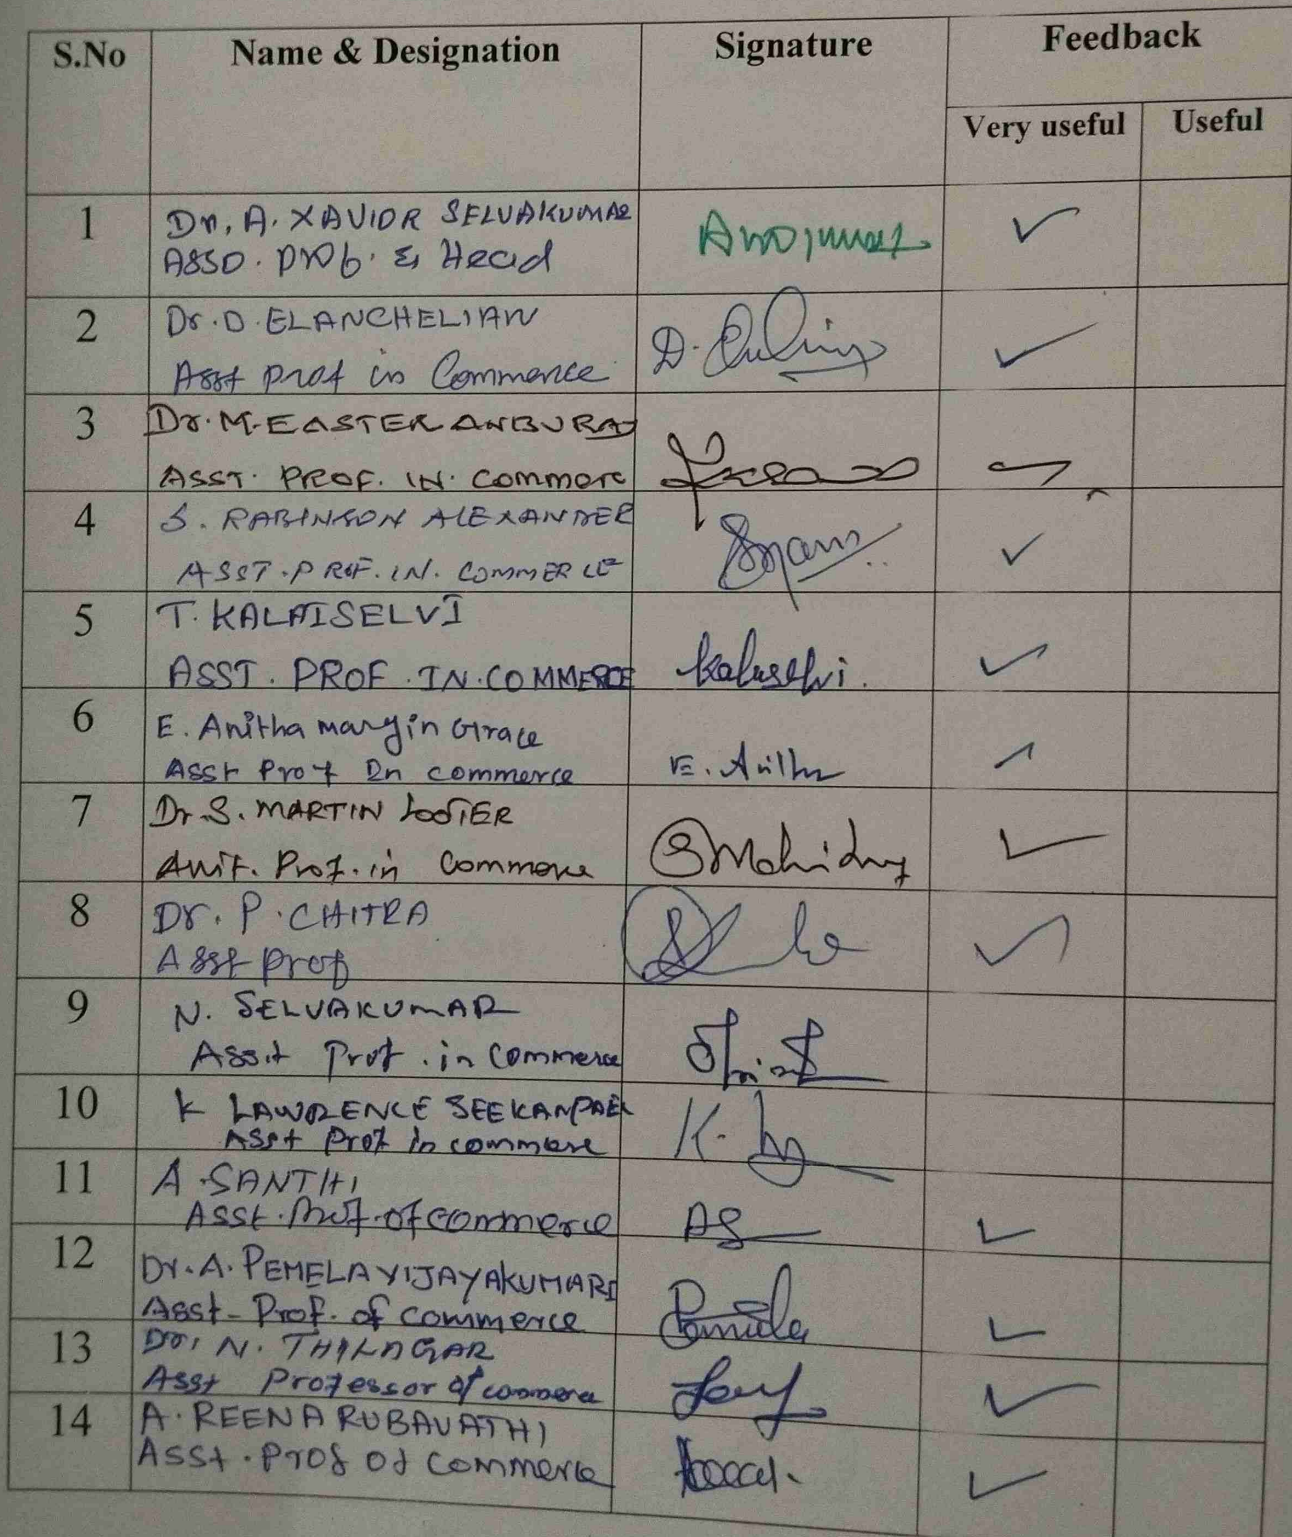 S.No Name & Designation Signature Feedback
Very useful Useful
1 Dr. A. XAVIOR SELVAKUMAR
ASSO. Prof. & Head
2 Dr. D. ELANCHELIAN
Asst Prof in Commerce D.
3 Dr. M. EASTER ANBURAJ
ASST. PROF. IN. Commerc
4 S. RABINSON ALEXANDER
ASST. PROF. IN. COMMERCE
5 T. KALAISELVI
ASST. PROF. IN. COMMERCE Kalaiselvi.
6 E. Anitha margin Grace
Asst Prof In commerce E. Anitha
7 Dr. S. MARTIN
Asst. Prof. in Commerce
8 Dr. P. CHITRA
Asst prof
9 N. SELVAKUMAR
Asst Prof. in Commerce
10 K LAWRENCE
Asst Prof in commerce K.
11 A. SANTHI
Asst. Prof. of commerce AS
12 Dr. A. PEMELA VIJAYAKUMARI
Asst-Prof. of commerce Pamela
13 Dr. N. THILAGAR
Asst Professor of commerce
14 A. REENA RUBAVATHI
Asst. Prof of commerce